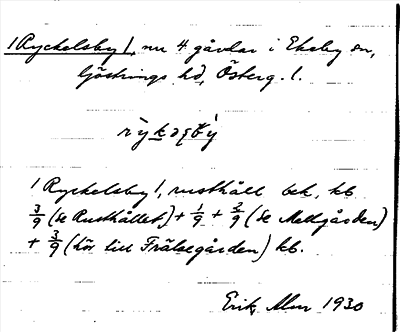 /Ryckelsby/, nu 4 gårdar i Ekeby sn,
Göstrings hd, Österg. l.
/Ryckelsby/, rusthåll bet. kb
3/9 (se Rusthållet) + 1/9 + 2/9 (se Mellgården)
+ 3/9 (hör till Frälsegården) kb.
Erik Mur 1930